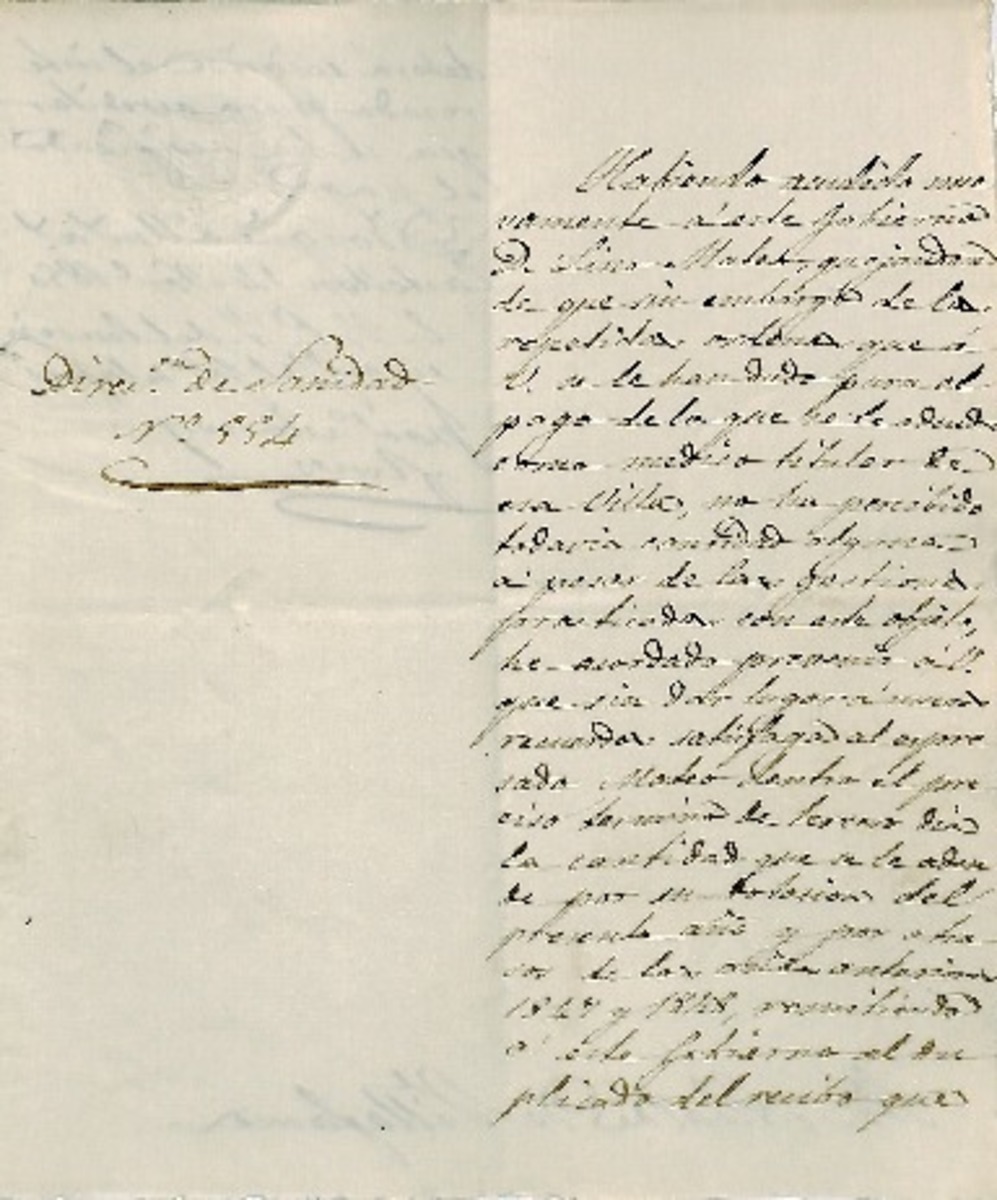 Direc.on de Sanidad
Nº 554
Habiendo acudido nue
vamente á este Gobierno
Dn Lino Mateo, quejandose
de que sin embargo de las
repetidas ordenes que á
U. se le han dado para el
pago de lo que se le adeuda
como medico titular de
esa Villa, no ha percibido
todavia cantidad alguna
á pesar de las gestiones
practicadas con este objeto,
he acordado prevenir á U.
que sin dar lugar á nuevos
recuerdos satisfaga al espre
sado Mateo dentro el pre
ciso termino de tercero dia
la cantidad que se le adeu
de por su dotacion del
presente año y por atra
sos de los anteriores
1847 y 1848, remitiendo
á este Gobierno el du
plicado del recibo que